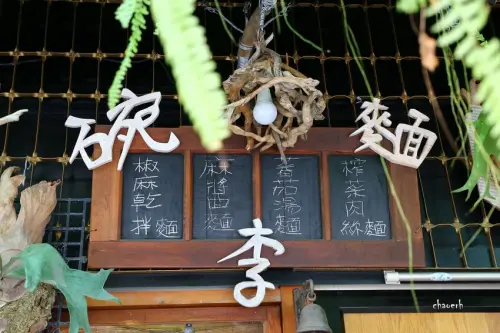 碗 麵
椒麻乾拌麵
麻醬麵
蕃茄湯麵
榨菜肉絲麵
李
chaoerh